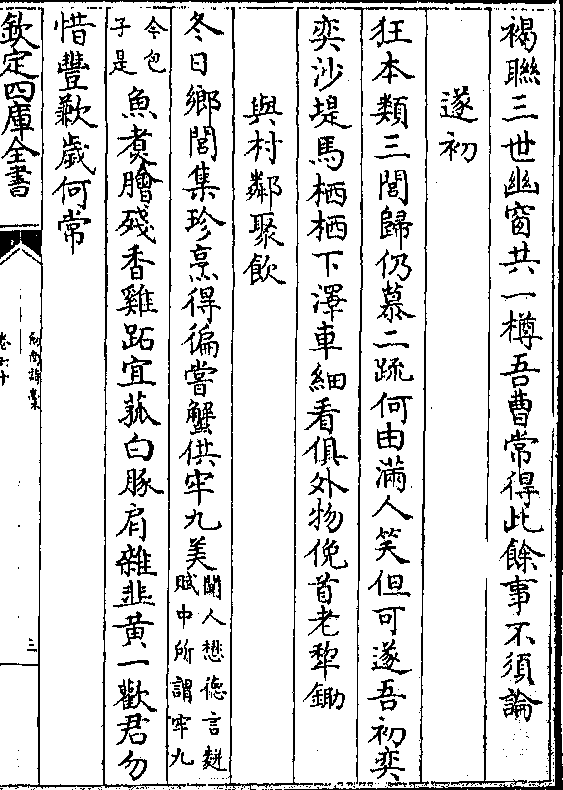 褐聯三世幽窗共一樽吾曹常得此餘事不須論
遂初
狂本類三閭歸仍慕二疏何由滿人笑但可遂吾初奕
奕沙堤馬栖栖下澤車細看俱外物俛首老犂鋤
與村鄰聚飲
冬日鄉閭集珍烹得徧嘗蟹供牢九美聞人懋德言麫賦中所謂牢九
今包子是魚煮膾殘香雞跖宜菰白豚肩雜韭黄一歡君勿
惜豐歉歲何常
欽定四庫全書
劍南詩稾
卷六十
三